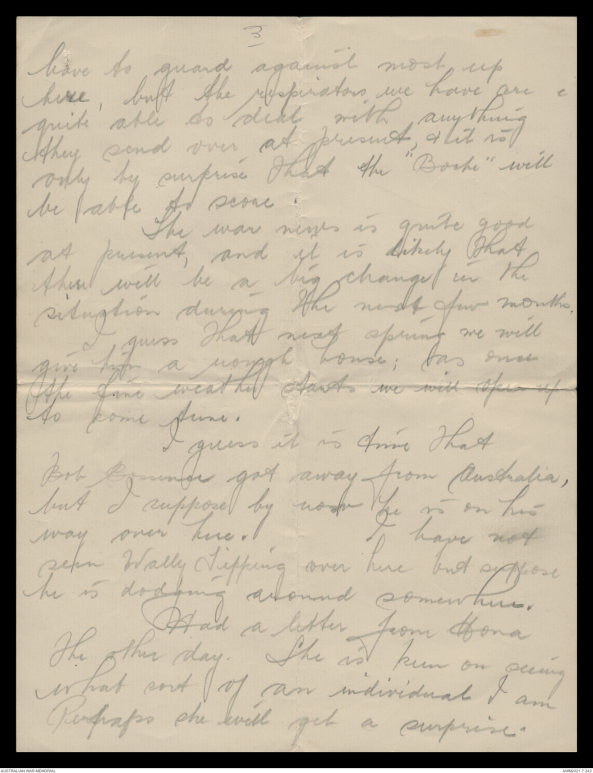 3
have to guard against most up
here, but the respirators we have are
quite able to deal with anything
they send over at present, & it is
only by surprise that the "Boche" will
be able to score.
The war news is quite good
at present, and it is likely that
there will be a big change in the
situation during the next few months.
I guess that next spring we will
give him a rough house; as once
the fine weather starts we will open up
to some tune.
I guess it is time that
Bob got away from Australia,
but I suppose by now he is on his
way over here. I have not
seen Wally Tipping over here but suppose
he is dodging around somewhere.
Had a letter from Mona
the other day. She is keen on seeing
what sort of an individual I am
Perhaps she will get a surprise.
AUSTRALIAN WAR MEMORIAL